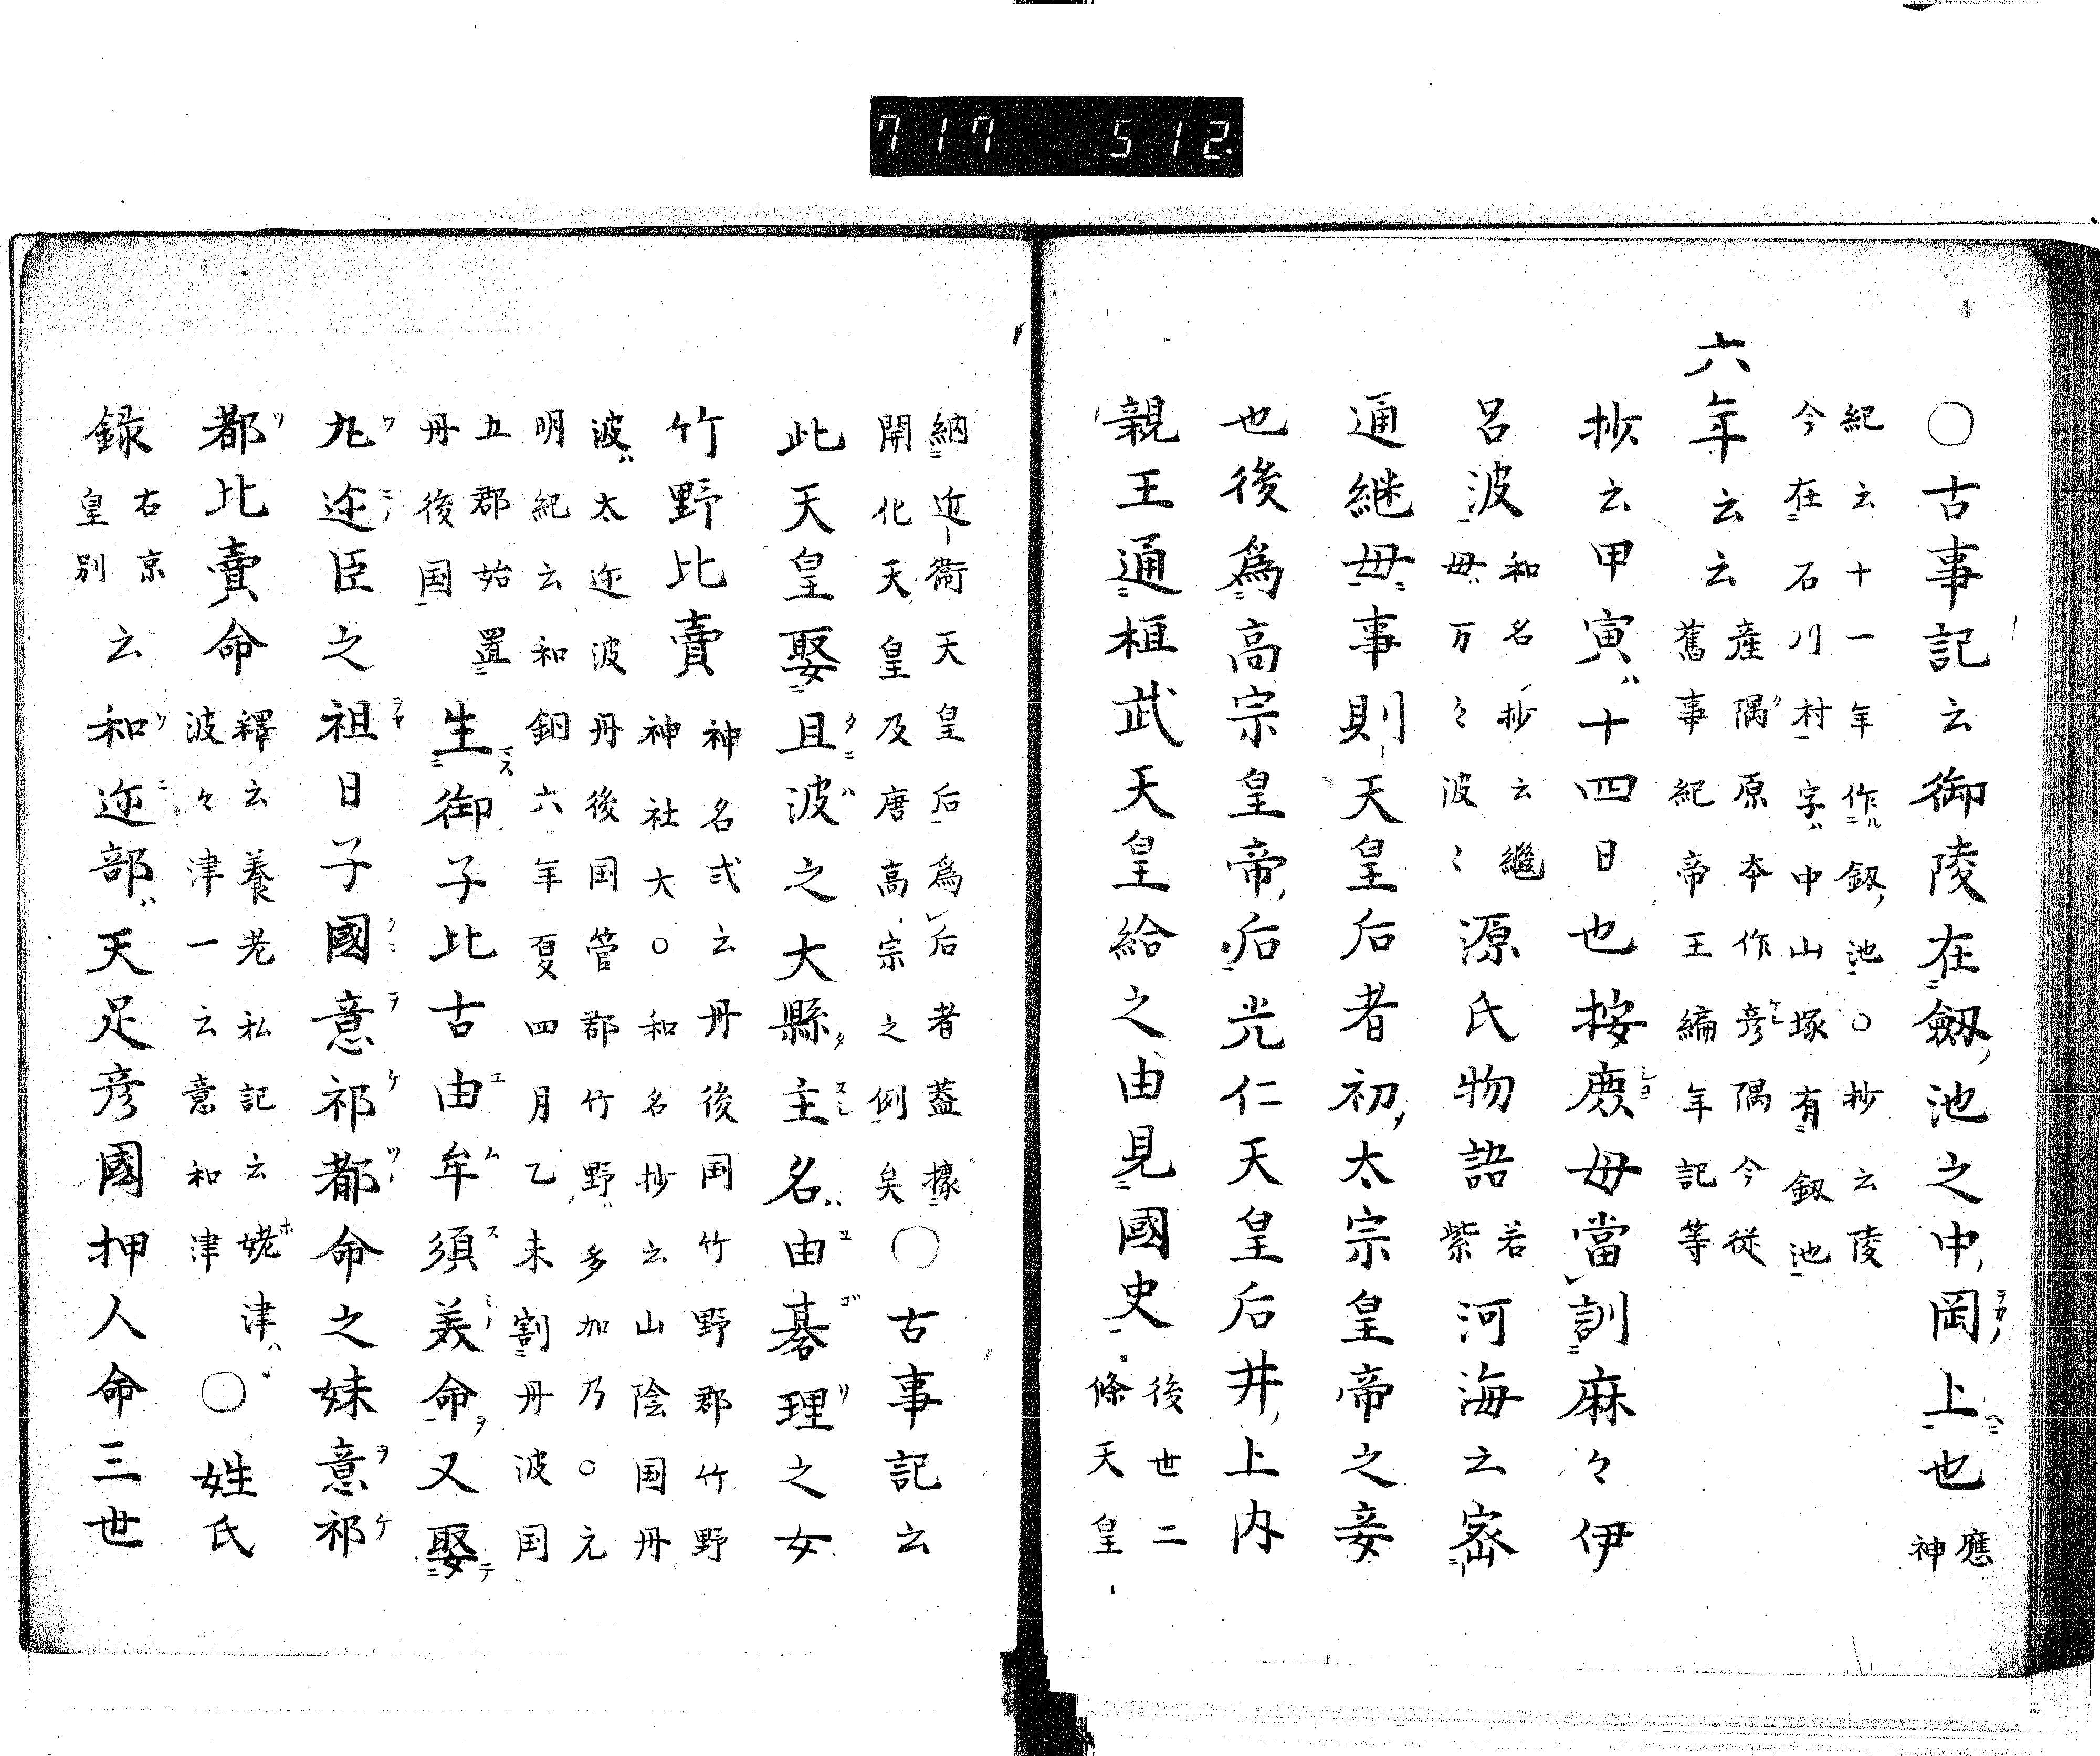 717 512
○古事記云御陵在劔池之中岡上也 應神
紀云十一年作釼池○抄云陵
今在石川村字中山塚有釼池
六年云云 産隅原本作彦隅今従
舊事紀帝王編年記等
抄云甲寅ハ十四日也按麃母當訓麻々伊
呂波 和名抄云繼
母万々波〻 源氏物語 若
紫 河海云密
通継母事則天皇后者初太宗皇帝之妾
也後爲高宗皇帝后光仁天皇后井上内
親王通桓武天皇給之由見國史 後世二
條天皇
納近衞天皇后爲后者蓋據
開化天皇及唐高宗之例矣 ○古事記云
此天皇娶旦波之大縣主名ハ由碁理之女
竹野比賣 神名式云丹後国竹野郡竹野
神社大○和名抄云山陰国丹
波ハ太迩波丹後国管郡竹野ハ多加乃○元
明紀云和銅六年夏四月乙未割丹波国
五郡始置
丹後国 生御子比古由牟須美命又娶
丸迩臣之祖日子國意祁都命之妹意祁
都比賣命 釋云養老私記云姥津ハ
波々津一云意和津 ○姓氏
録 右京
皇別 云和迩部ハ天足彦國押人命三世